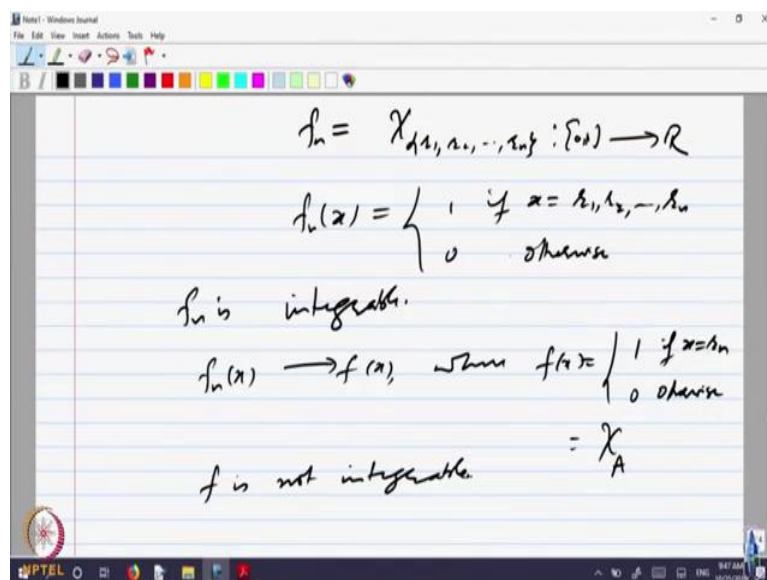 Note1 - Windows Journal
File Edit View Insert Actions Tools Help
B I
fₙ = χ_{{r₁, r₂, ..., rₙ}} : [0,1] → R
fₙ(x) = { 1 if x = r₁, r₂, ..., rₙ
0 otherwise
fₙ is integrable.
fₙ(x) → f(x), where f(x) = { 1 if x=rₙ
0 otherwise
= χ_A
f is not integrable.
NPTEL
ENG
9:47 AM